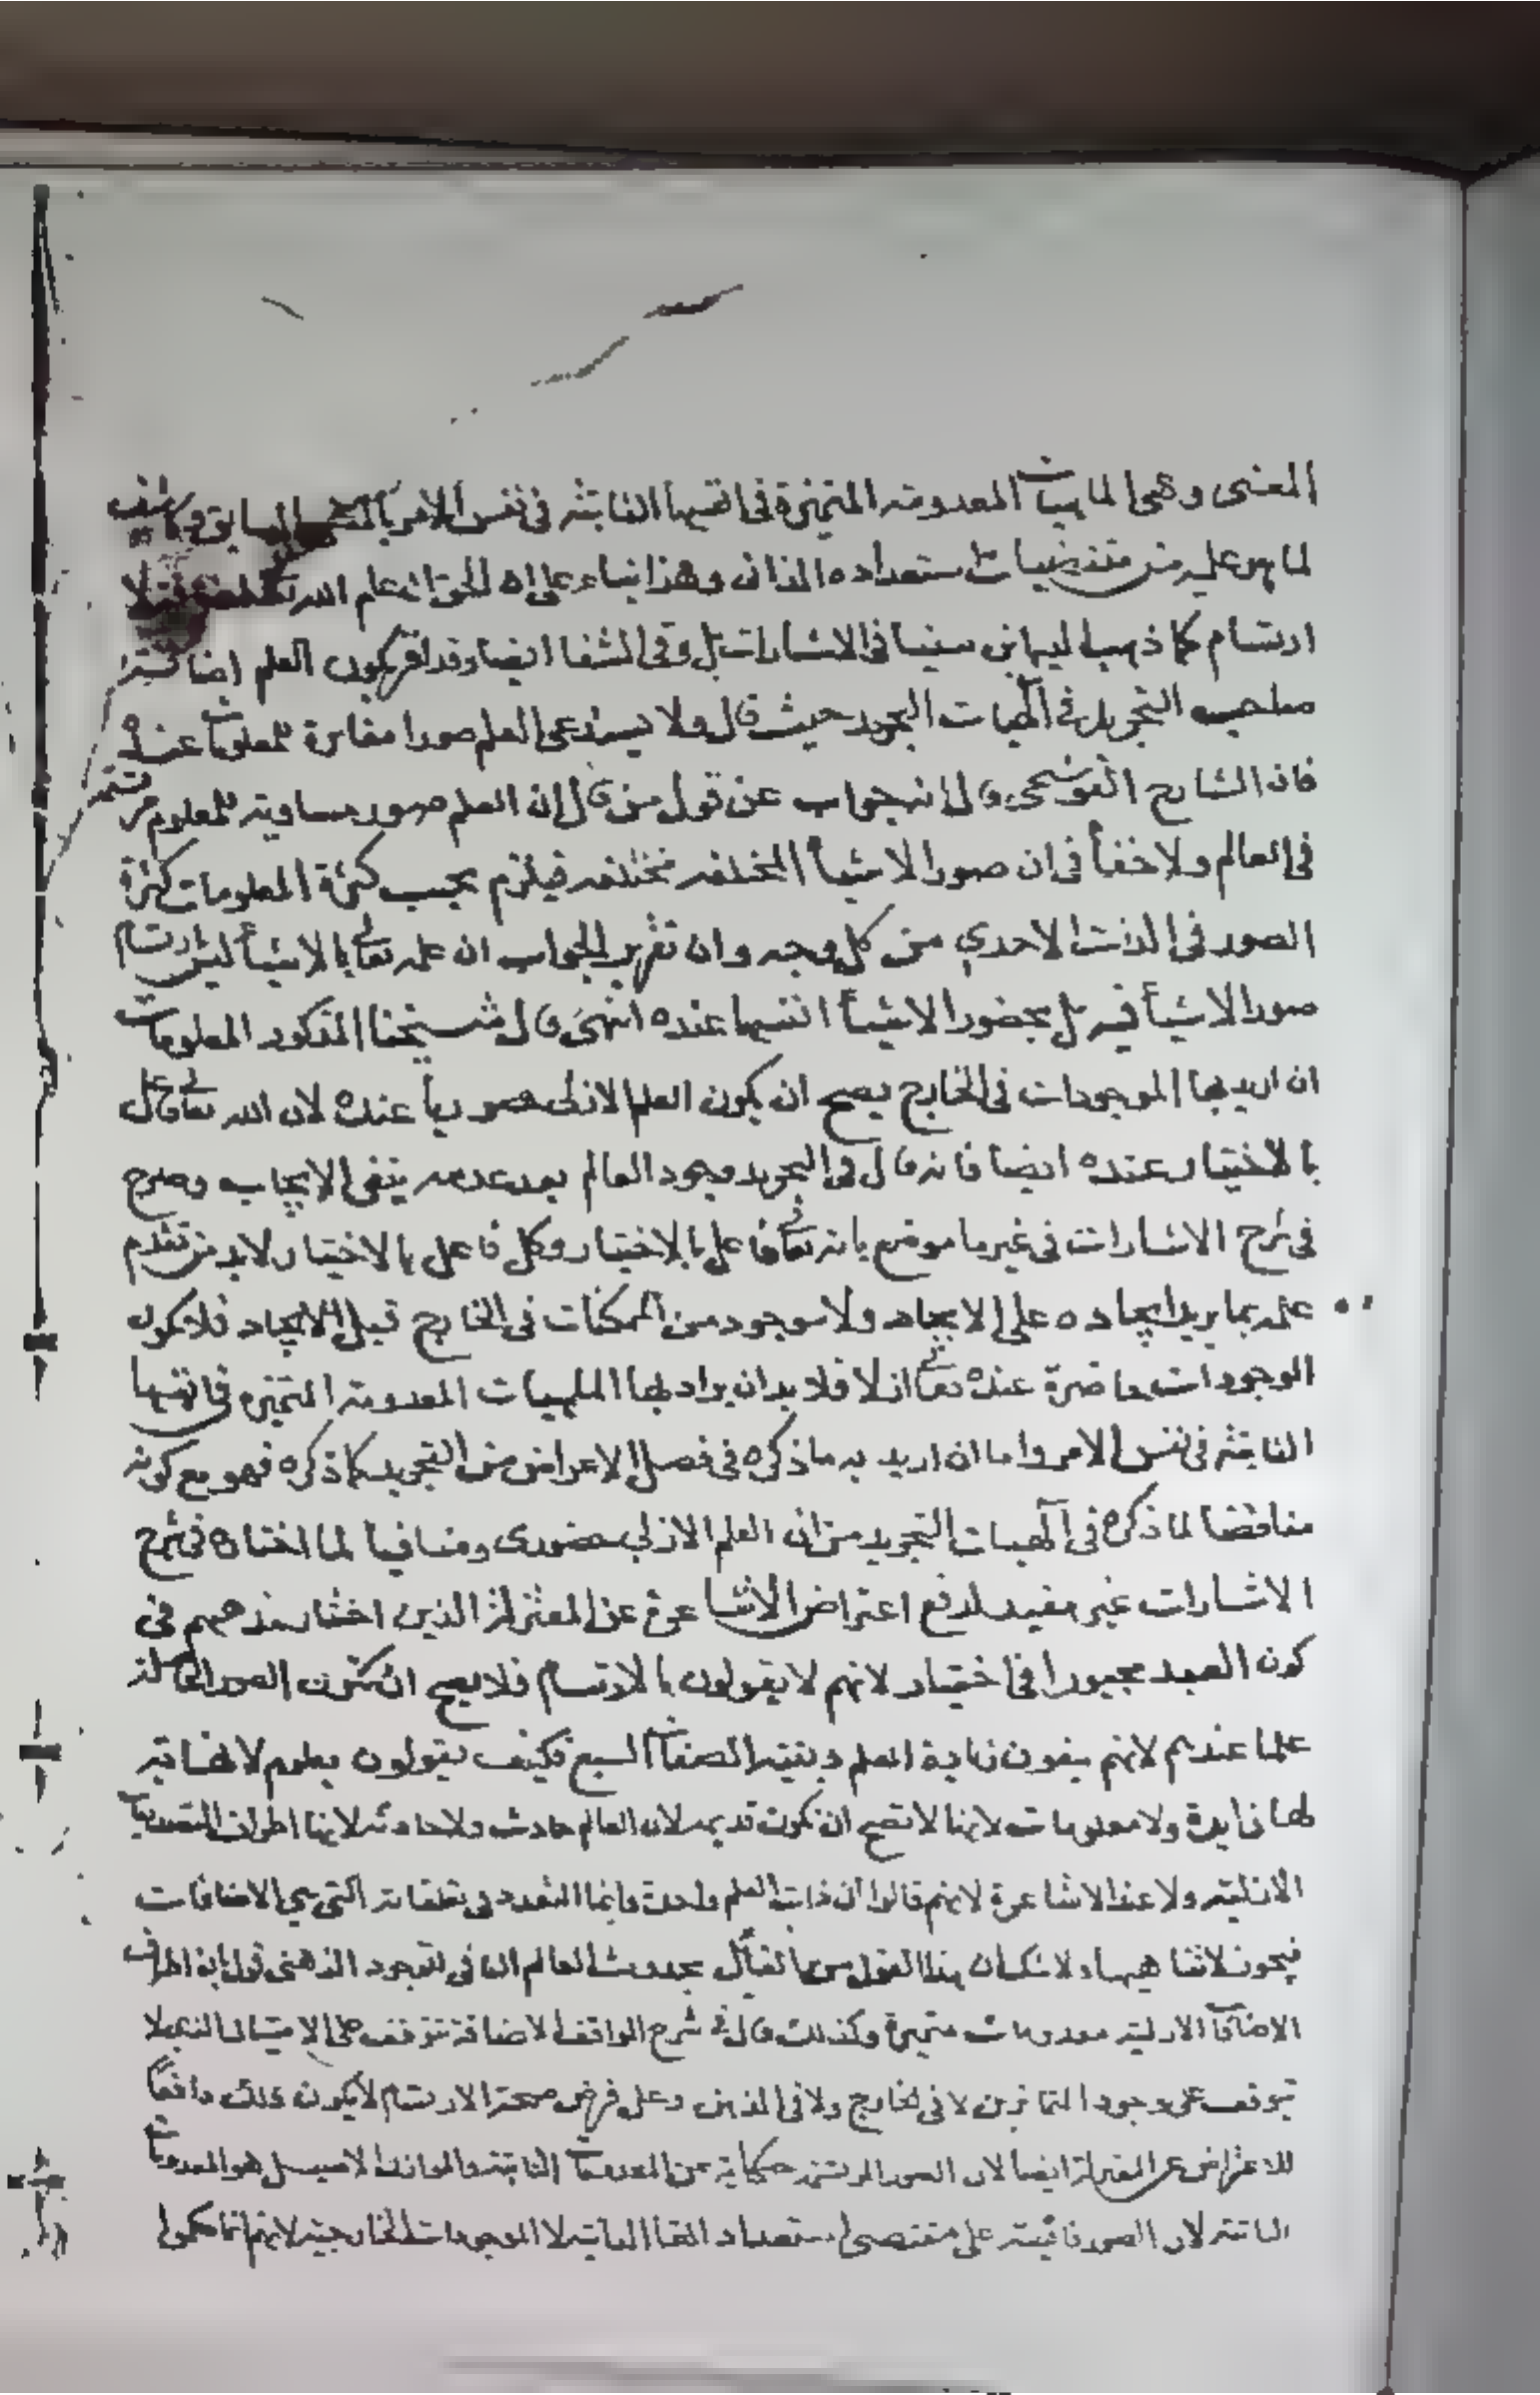 المعنى وهى الماهيات المعدومة المتميزة فى انفسها الثابتة فى نفس الامر السابق وكاشف
لما هو عليه من مقتضيات استعداده الذاتى وهذا بناء على ان الحق ان علم الله
ارتسام كما ذهب اليه ابن سينا فى الاشارات بل وفى الشفا ايضا وقد يكون العلم اضافة
صاحب التجريد فى الهيات التجريد حيث قال ولا يستدعى العلم صورا مغايرة للمعلومات عنده
فان الشارح القوشجى قال انه جواب عن قول من قال ان العلم صور مساوية للمعلوم مرتسمة
فى العالم ولا خفأ فى ان صور الاشيأ المختلفة مختلفة فيلزم بحسب كثرة المعلومات كثرة
الصور فى الذات الاحدي من كل وجه وان تقرير الجواب ان علمه تعالى بالاشيأ ليس بارتسام
صور الاشيأ فيه بل بحضور الاشيأ انفسها عنده انتهى قال شيخنا المذكور المعلومات
ان اريد بها الموجودات فى الخارج يصح ان يكون العلم الازلى حضوريا عنده لان الله تعالى فاعل
بالاختيار عنده ايضا فانه قال فى التجريد وجود العالم بعد عدمه ينفى الايجاب وصرح
فى شرح الاشارات فى غير ما موضع بانه تعالى فاعل بالاختيار وكل فاعل بالاختيار لابد من تقدم
علمه بما يريد ايجاده على الايجاد ولا موجود من الممكنات فى الخارج قبل الايجاد فلا تكون
الموجودات حاضرة عنده تعالى ازلا فلا بد ان يراد بها الماهيات المعدومة المتميزه فى انفسها
الثابتة فى نفس الامر واما ان اريد به ما ذكره فى فصل الاعراض من التجريد كما ذكره فهو مع كونه
مناقضا لما ذكره فى الهيات التجريد من ان العلم الازلي حضورى ومنافيا لما اختاره فى شرح
الاشارات غير مفيد لدفع اعتراض الاشاعرة عن المعتزلة الذين اختار مذهبهم فى
كون العبد مجبورا فى اختيار لانهم لا يقولون بالارتسام فلا يصح ان تكون الصور الحاصلة
علما عندهم لانهم ينفون زيادة العلم وبقية الصفات السبع فكيف يقولون بعلوم لا نهاية
لها زايدة ولا معلومات لانها لا تصح ان تكون قديمه لان العالم حادث ولا حادثة لانها اطراف
الازلية ولا عند الاشاعرة لانهم قالوا ان ذات العلم واحدة وانما التعدد فى تعلقاته التى هي الاضافات
ولا شك ان هذا القول من القائل بحدوث العالم النافى للوجود الذهنى قول بان اطراف
الاضافات الازلية معدومات متميزة وكذلك قال فى شرح المواقف الاضافة تتوقف على الامتياز الذى لا
يتوقف على وجود المتمايزين لا فى الخارج ولا فى الذهن وعلى فرض صحة الارتسام لا يكون ذلك دافعا
للاعتراض عن المعتزلة ايضا لان الصور المرتسمة حكاية عن المعدومات الثابتة هو المعدومات
الثابتة لان الصور على مقتضى استعداد الثابتة لا الموجودات الخارجية لانهم